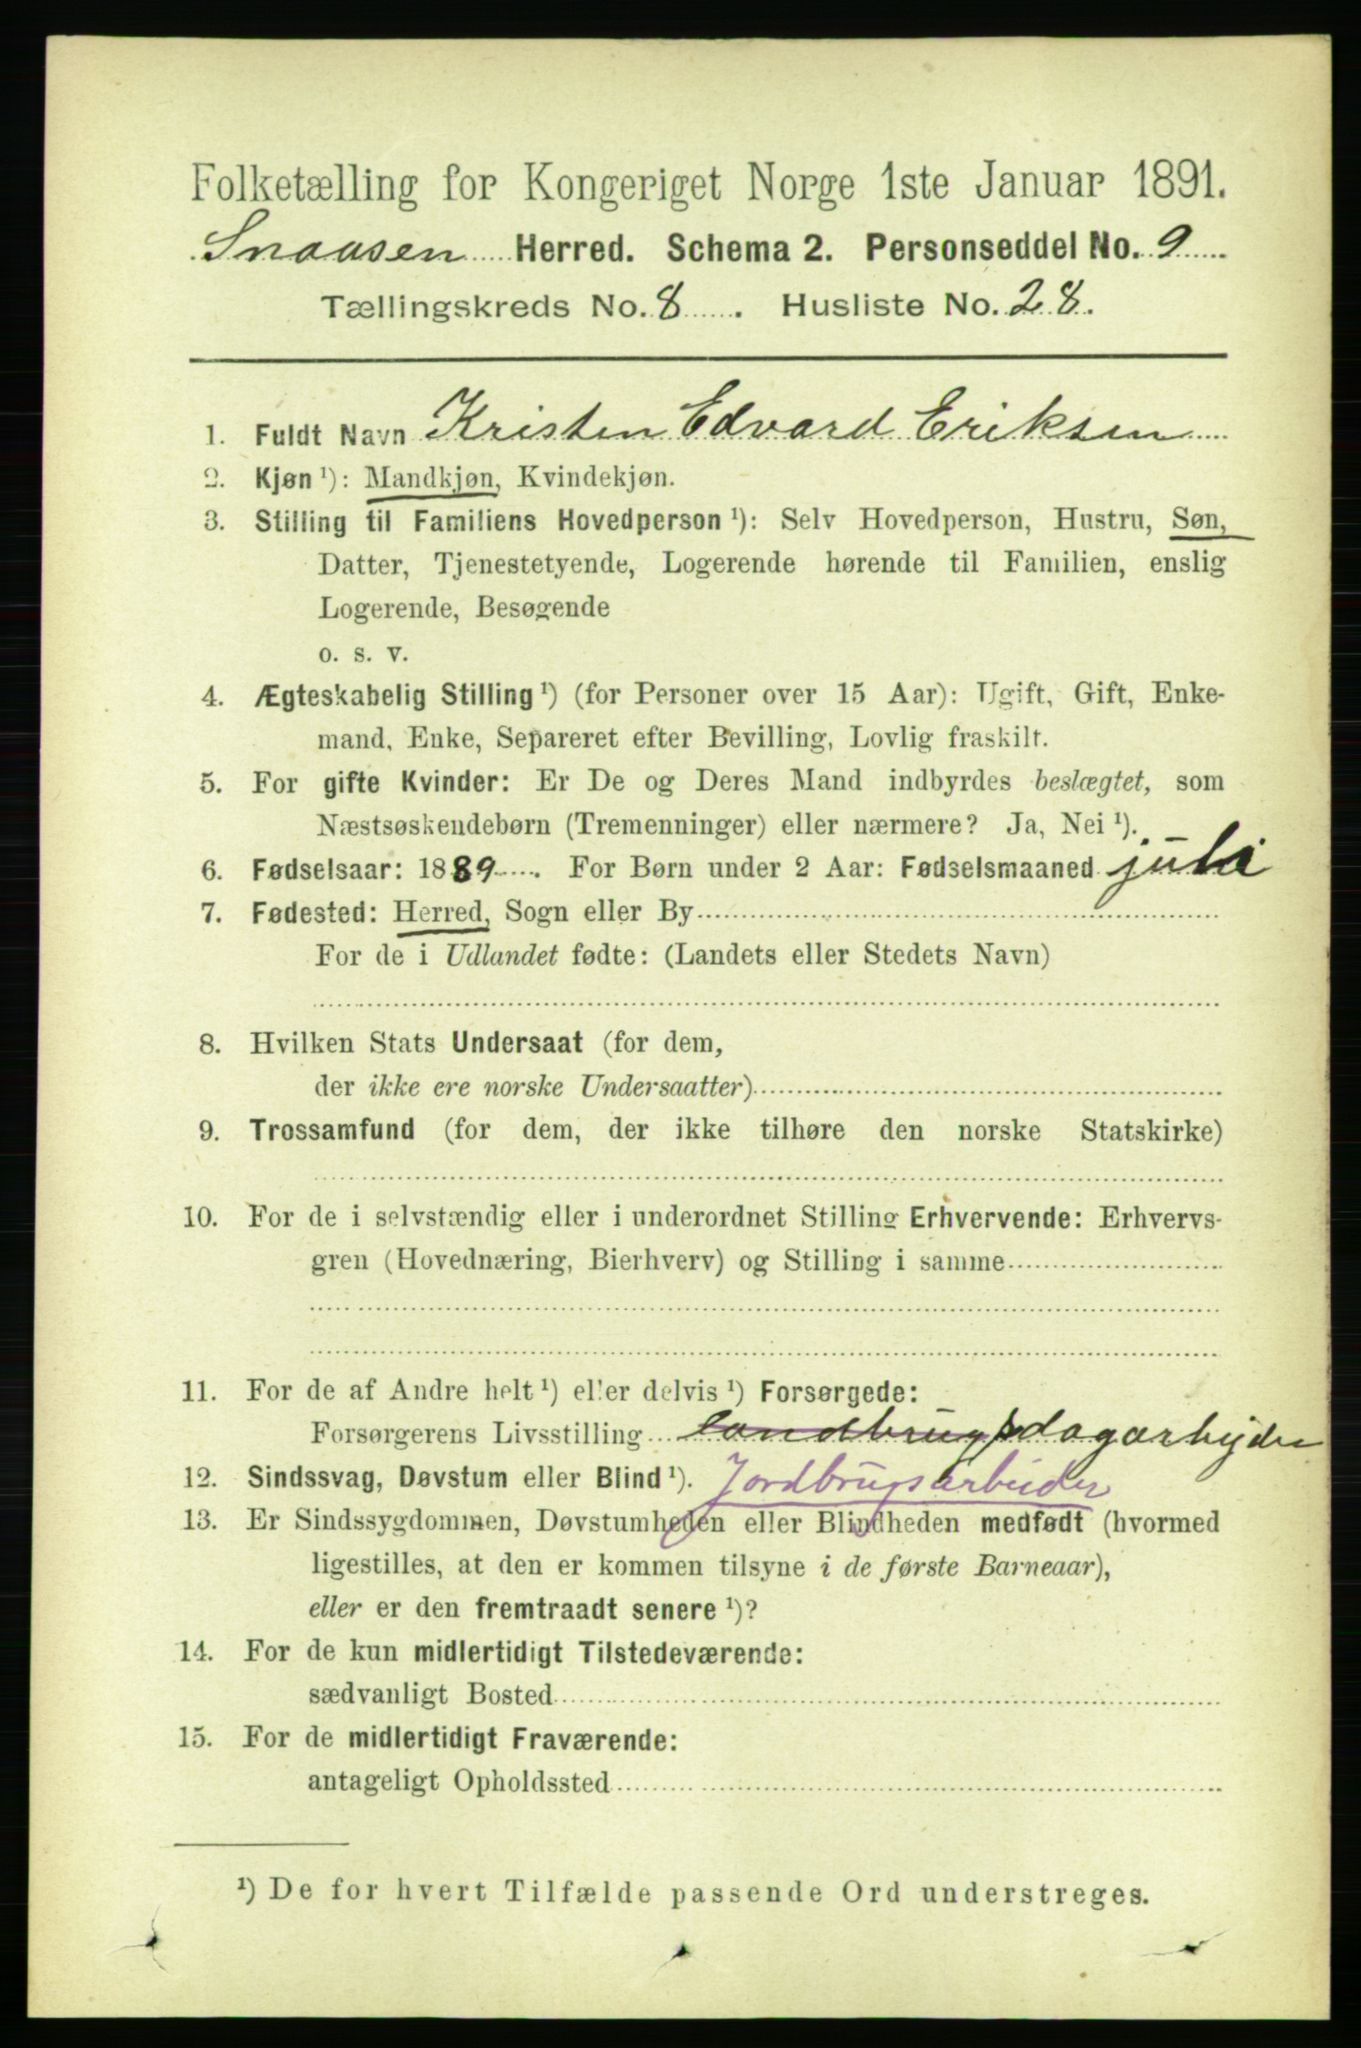 Folketælling for Kongeriget Norge 1ste Januar 1891.
Snaasen Herred. Schema 2. Personseddel No. 9
Tællingskreds No. 8. Husliste No. 28.
1. Fuldt Navn Kristen Edvard Eriksen
2. Kjøn ¹): Mandkjøn, Kvindekjøn.
3. Stilling til Familiens Hovedperson ¹): Selv Hovedperson, Hustru, Søn,
Datter, Tjenestetyende, Logerende hørende til Familien, enslig
Logerende, Besøgende
o. s. v.
4. Ægteskabelig Stilling ¹) (for Personer over 15 Aar): Ugift, Gift, Enke-
mand, Enke, Separeret efter Bevilling, Lovlig fraskilt.
5. For gifte Kvinder: Er De og Deres Mand indbyrdes beslægtet, som
Næstsøskendebørn (Tremenninger) eller nærmere? Ja, Nei ¹).
6. Fødselsaar: 1889. For Børn under 2 Aar: Fødselsmaaned juli
7. Fødested: Herred, Sogn eller By
For de i Udlandet fødte: (Landets eller Stedets Navn)
8. Hvilken Stats Undersaat (for dem,
der ikke ere norske Undersaatter)
9. Trossamfund (for dem, der ikke tilhøre den norske Statskirke)
10. For de i selvstændig eller i underordnet Stilling Erhvervende: Erhvervs-
gren (Hovednæring, Bierhverv) og Stilling i samme
11. For de af Andre helt ¹) eller delvis ¹) Forsørgede:
Forsørgerens Livsstilling landbrugs dagarbejder
12. Sindssvag, Døvstum eller Blind ¹). Jordbrugsarbeider
13. Er Sindssygdommen, Døvstumheden eller Blindheden medfødt (hvormed
ligestilles, at den er kommen tilsyne i de første Barneaar),
eller er den fremtraadt senere ¹)?
14. For de kun midlertidigt Tilstedeværende:
sædvanligt Bosted
15. For de midlertidigt Fraværende:
antageligt Opholdssted
¹) De for hvert Tilfælde passende Ord understreges.